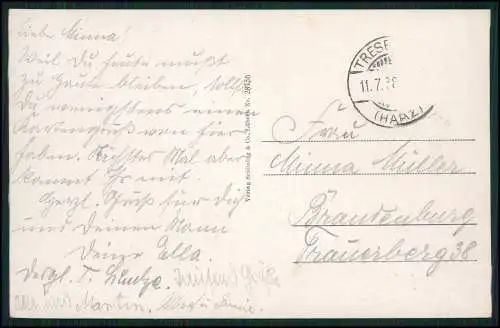 Liebe Minna!
Weil Du heute mußt
zu Hause bleiben, sollst
Du wenigstens einen
Kartengruß von hier
haben. Nächstes Mal aber
kommt Ihr mit.
Herzl. Gruß für Dich
und Deinen Mann
Deine Ella.
Desgl.
Martin.
TRESE
11.7.38
(HARZ)
Frau
Minna Müller
Brandenburg
Trauerberg 38